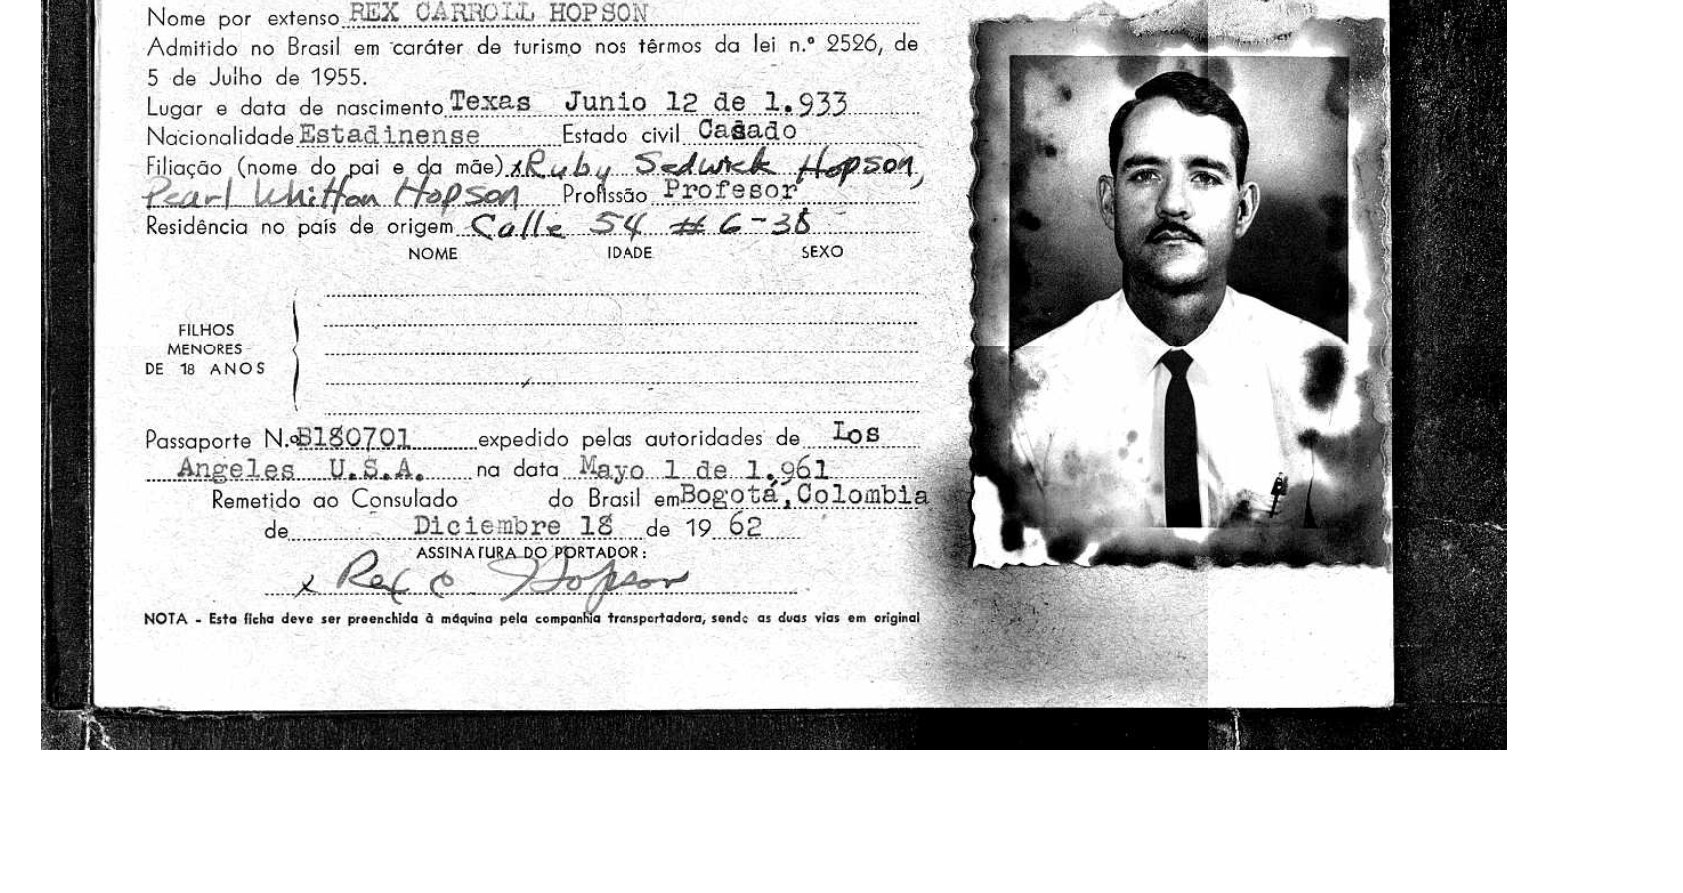 Nome por extenso REX CARROLL HOPSON
Admitido no Brasil em caráter de turismo nos têrmos da lei n.º 2526, de
5 de Julho de 1955.
Lugar e data de nascimento Texas Junio 12 de 1.933
Nacionalidade Estadinense Estado civil Casado
Filiação (nome do pai e da mãe) x Ruby Sedwick Hopson,
Pearl Whitton Hopson Profissão Profesor
Residência no país de origem Calle 54 # 6-38
NOME IDADE SEXO
FILHOS
MENORES
DE 18 ANOS
Passaporte N.º B180701 expedido pelas autoridades de Los
Angeles U.S.A. na data Mayo 1 de 1.961
Remetido ao Consulado do Brasil em Bogotá, Colombia
de Diciembre 18 de 19 62
ASSINATURA DO PORTADOR:
x Rex C Hopson
NOTA - Esta ficha deve ser preenchida à máquina pela companhia transportadora, sendo as duas vias em original